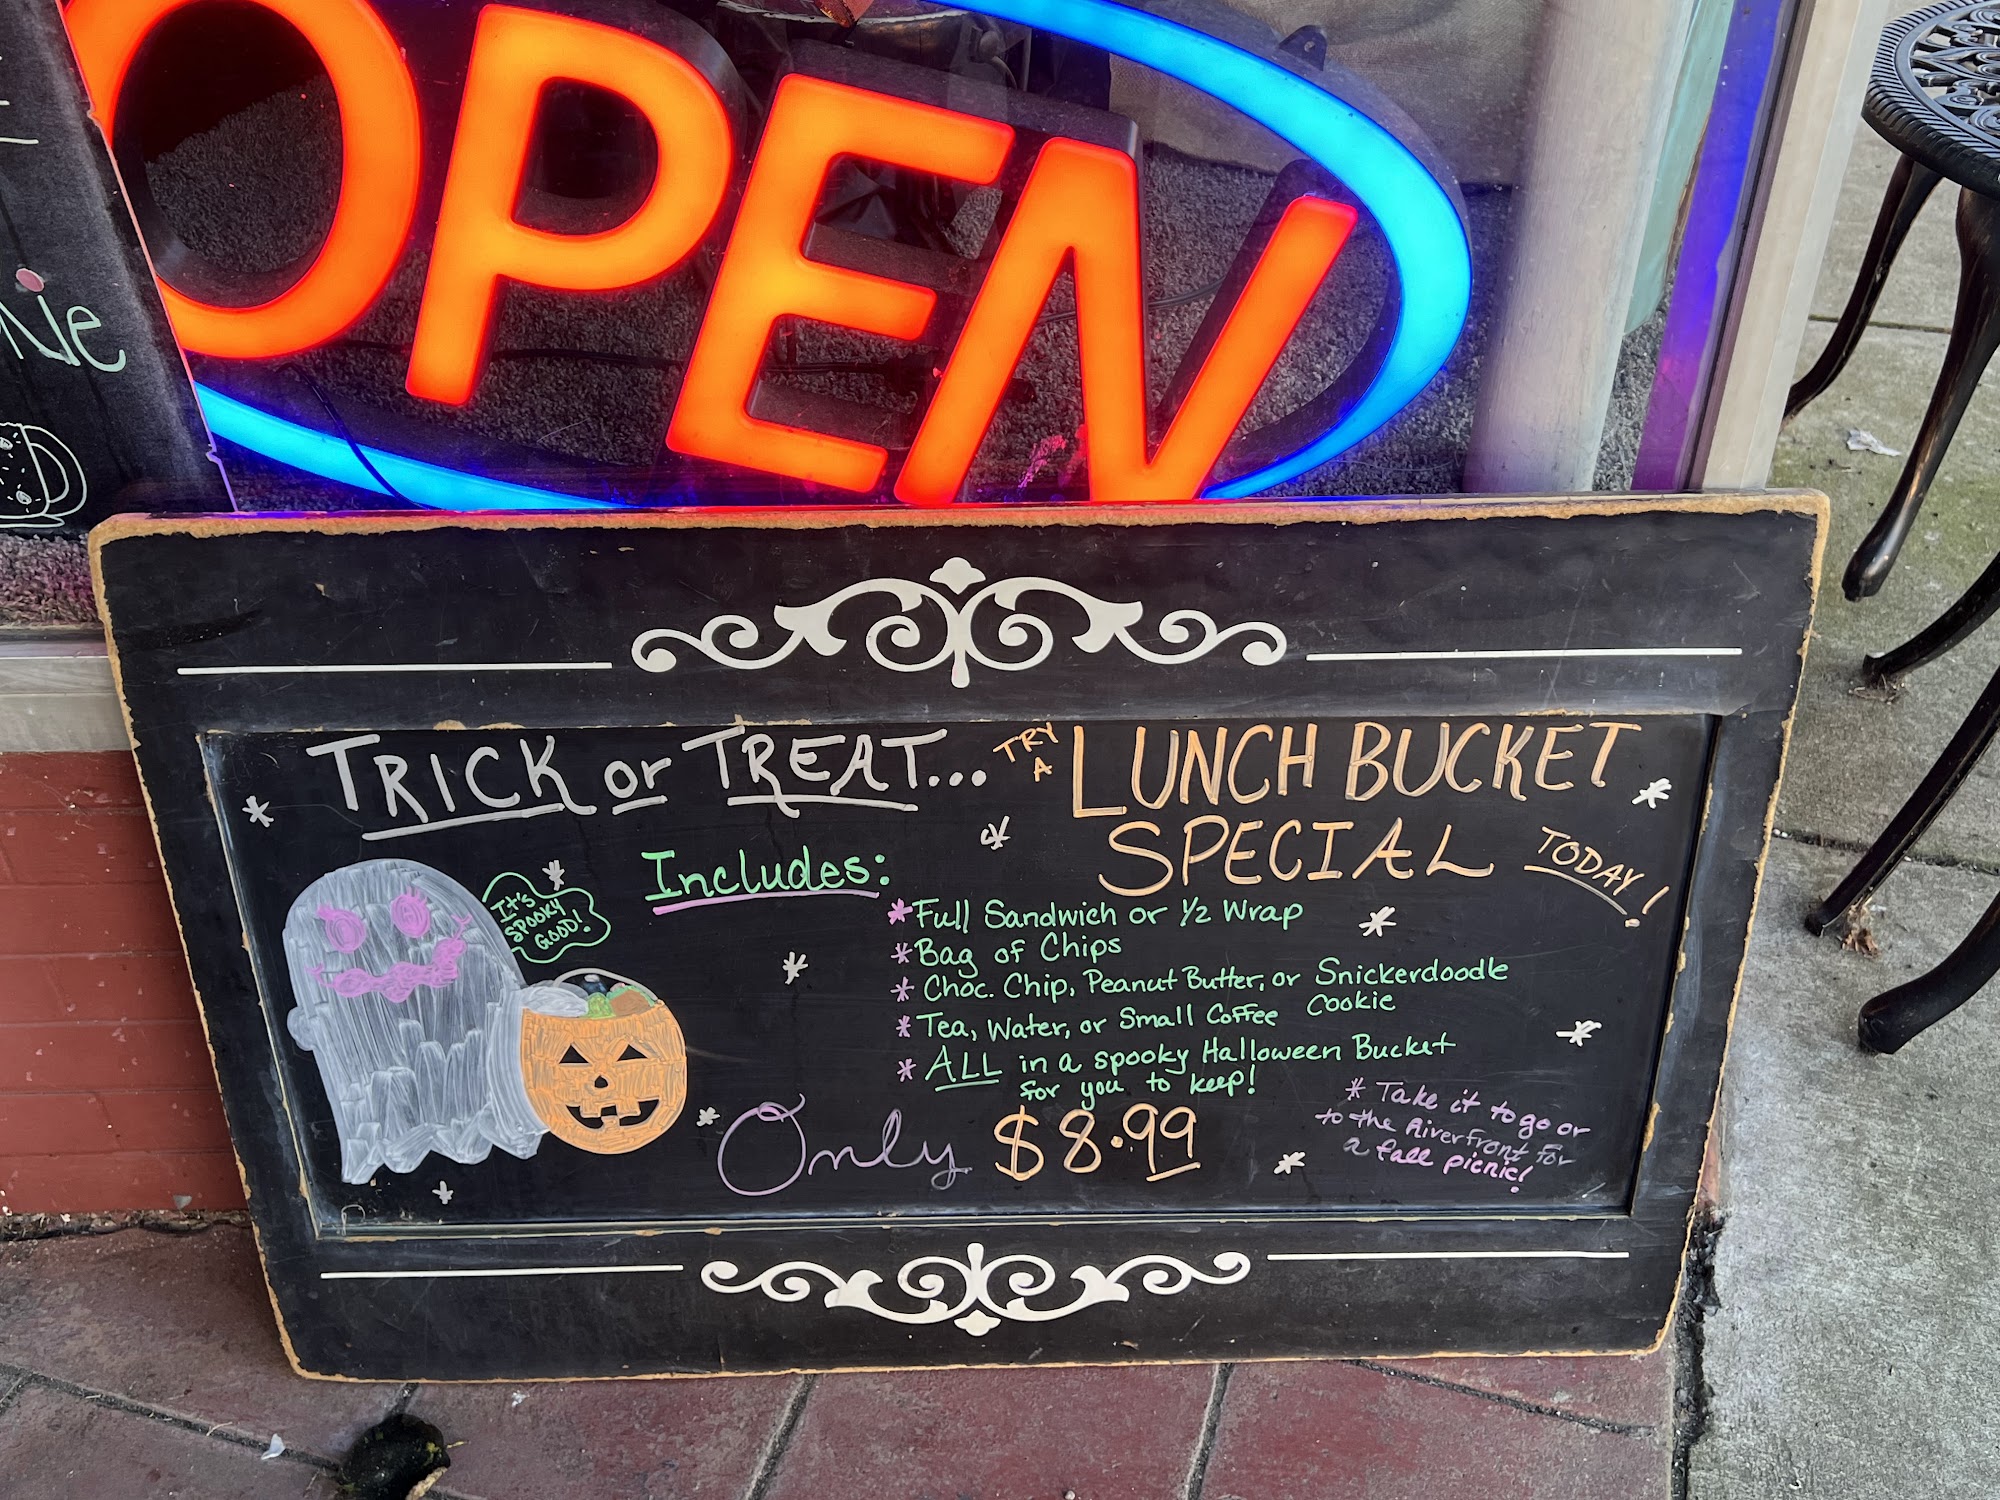 OPEN
Nie
TRICK or TREAT... TRY A LUNCH BUCKET
SPECIAL TODAY!
It's
SPOOKY
GOOD!
Includes:
* Full Sandwich or 1/2 Wrap
* Bag of Chips
* Choc. Chip, Peanut Butter, or Snickerdoodle
Cookie
* Tea, Water, or Small Coffee
* ALL in a spooky Halloween Bucket
for you to keep!
Only $8.99
* Take it to go or
to the Riverfront for
a fall picnic!